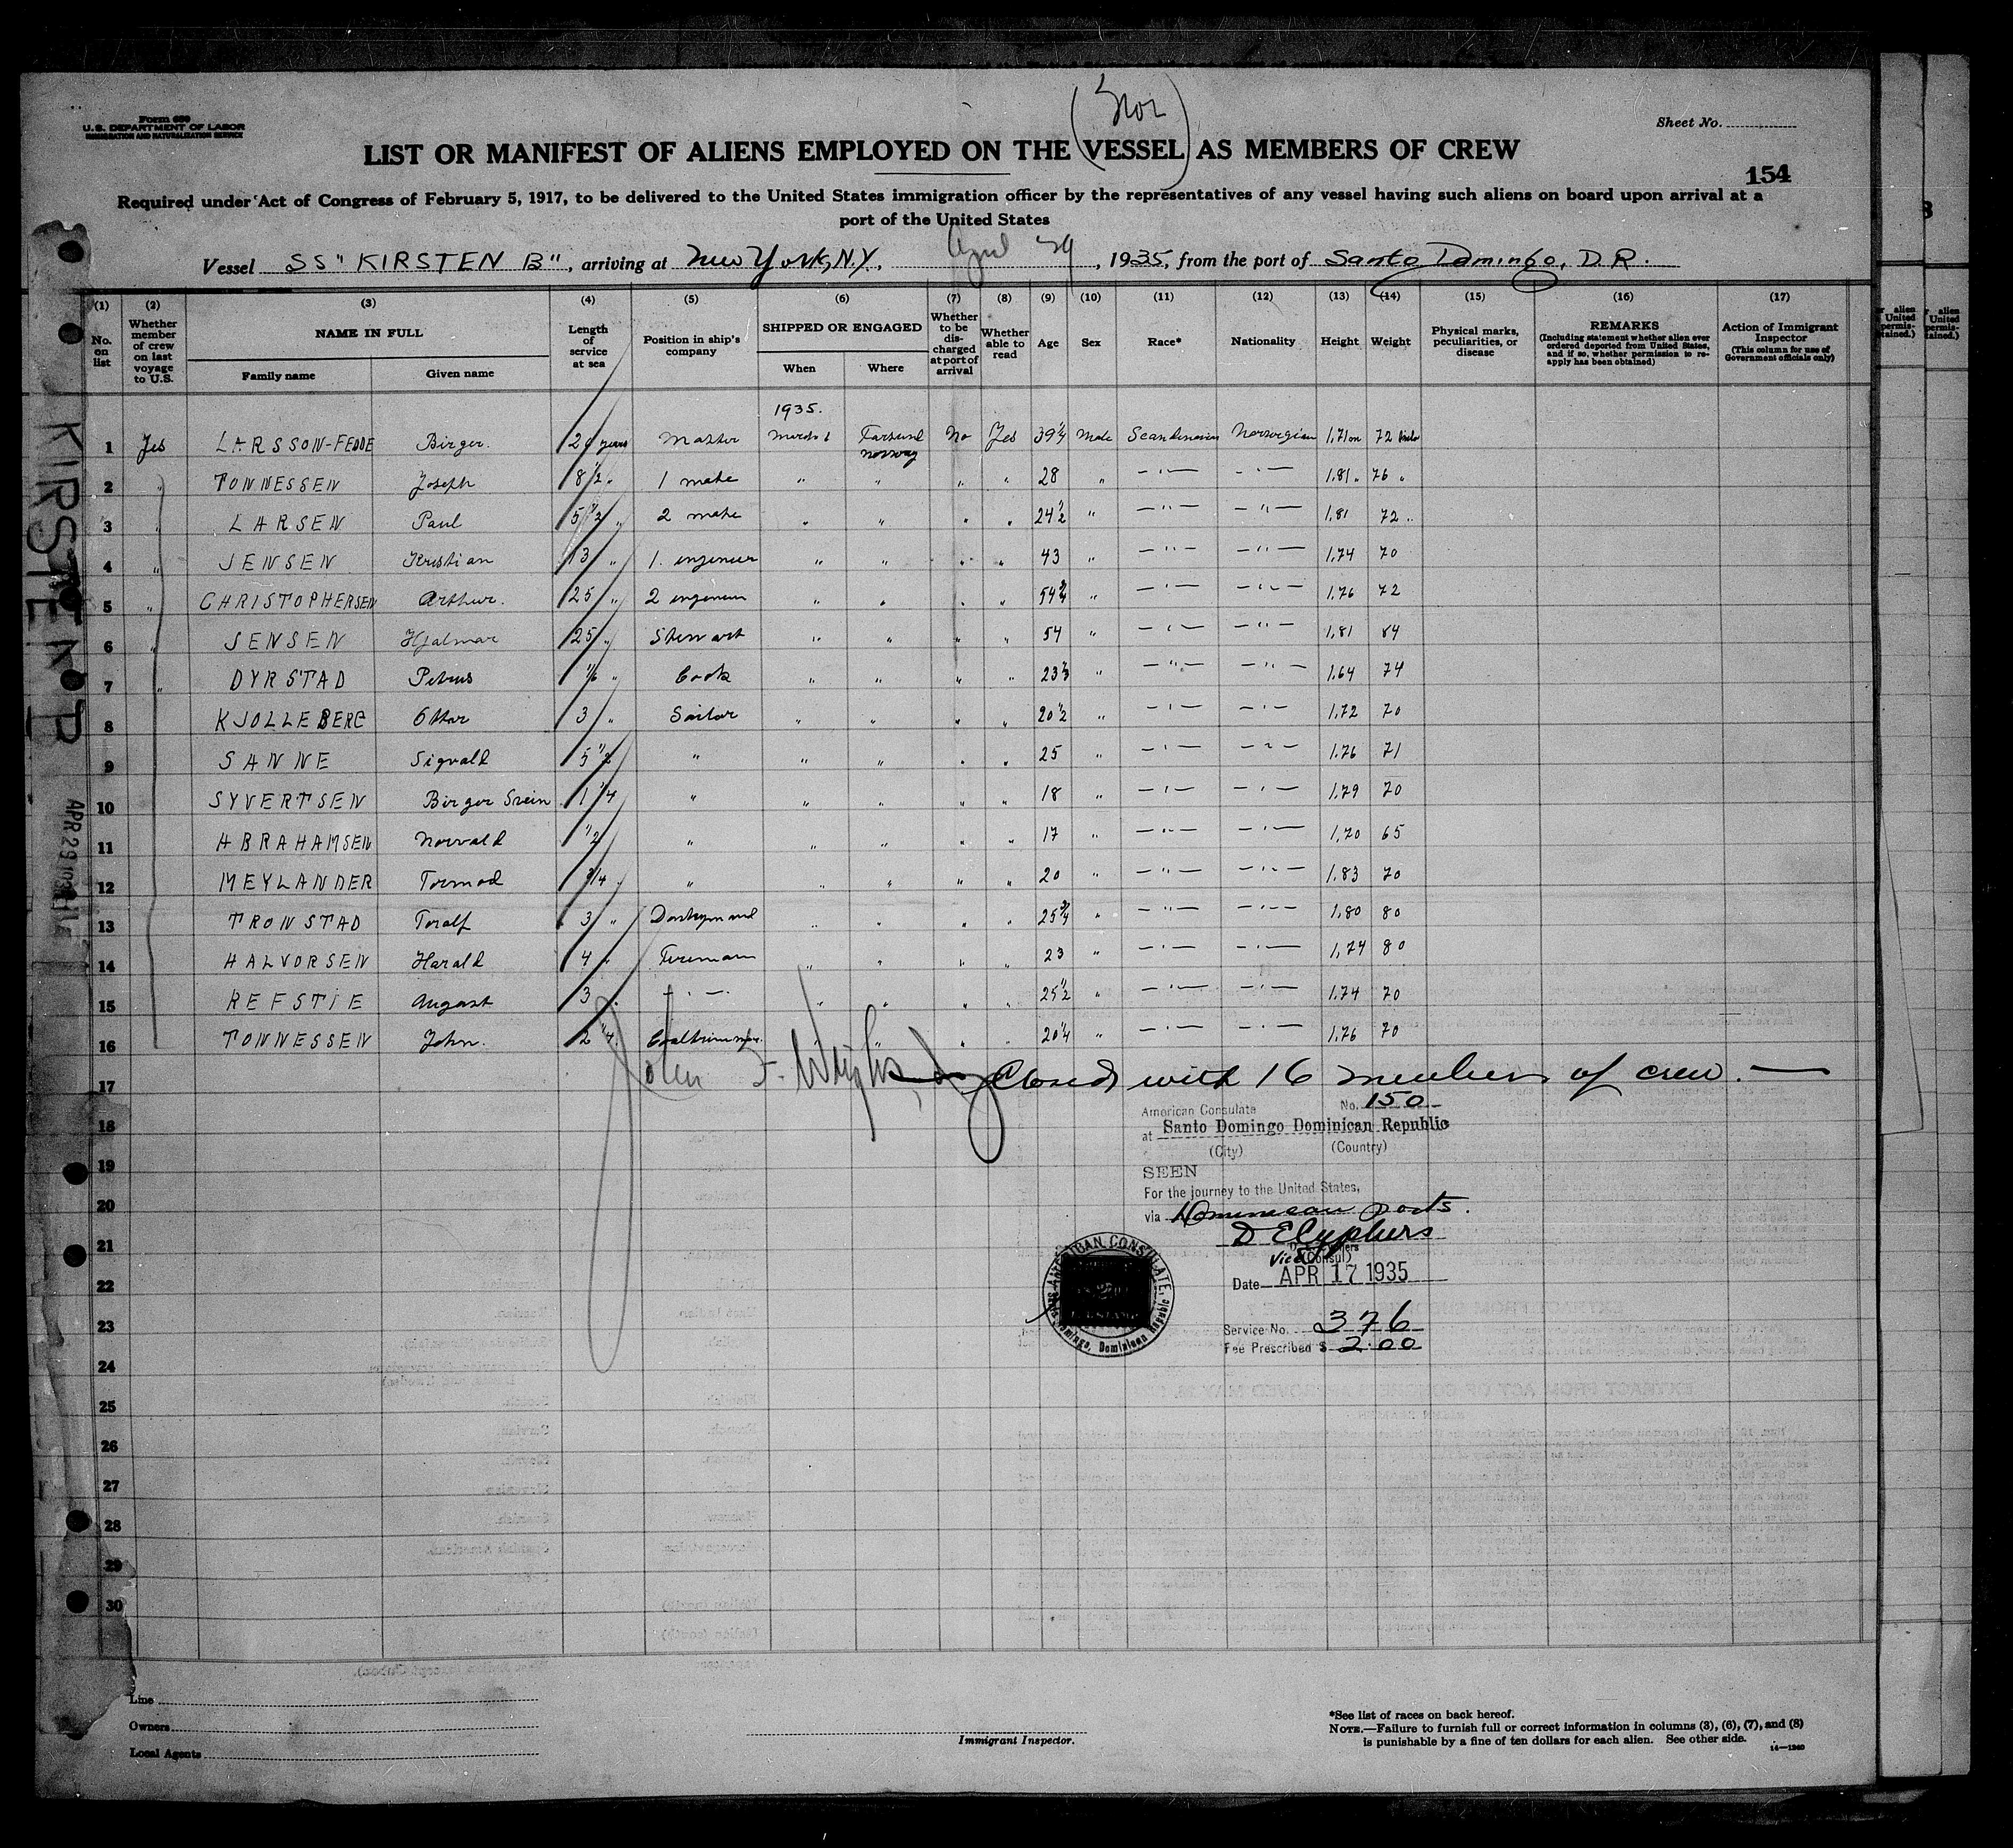 (Nor)
Form 680
U.S. DEPARTMENT OF LABOR
IMMIGRATION AND NATURALIZATION SERVICE
Sheet No.
LIST OR MANIFEST OF ALIENS EMPLOYED ON THE VESSEL AS MEMBERS OF CREW
154
Required under Act of Congress of February 5, 1917, to be delivered to the United States immigration officer by the representatives of any vessel having such aliens on board upon arrival at a
port of the United States
Vessel SS "KIRSTEN B", arriving at New York, N.Y., April 29, 1935, from the port of Santo Domingo, D.R.
(1) (2) (3) (4) (5) (6) (7) (8) (9) (10) (11) (12) (13) (14) (15) (16) (17)
No. on list
Whether member of crew on last voyage to U.S.
NAME IN FULL
Family name
Given name
Length of service at sea
Position in ship's company
SHIPPED OR ENGAGED
When
Where
Whether to be discharged at port of arrival
Whether able to read
Age
Sex
Race*
Nationality
Height
Weight
Physical marks, peculiarities, or disease
REMARKS
(Including statement whether alien ever ordered deported from United States, and if so, whether permission to re-apply has been obtained)
Action of Immigrant Inspector
(This column for use of Government officials only)
1935.
1 Yes LARSSON-FEDDE Birger. 20 years Master March 1 Farsund Norway No Yes 39 1/4 Male Scandinavian Norwegian 1,71 m 72 kilo
2 " TONNESSEN Joseph 8 1/2 " 1 mate " " " " 28 " — " — — " — 1.81 " 76 "
3 " LARSEN Paul 5 1/2 " 2 mate " " " " 24 1/2 " — " — — " — 1,81 72 "
4 " JENSEN Kristian 13 " 1. engeneer " " " " 43 " — " — — " — 1,74 70
5 " CHRISTOPHERSEN Arthur. 25 " 2 engeneer " " " " 54 3/4 " — " — — " — 1,76 72
6 " JENSEN Hjalmar 25 " Stewart " " " " 54 " — " — — " — 1,81 84
7 " DYRSTAD Petrus 1/6 " Cook " " " " 23 1/3 " — " — — " — 1.64 74
8 KJOLLEBERG Ottar 3 " Sailor " " " " 20 1/2 " — " — — " — 1.72 70
9 SANNE Sigvald 5 1/2 " " " " " 25 " — " — — " — 1.76 71
10 SYVERTSEN Birger Svein 1 1/4 " " " " " 18 " — " — — " — 1.79 70
11 ABRAHAMSEN Norvald 1/2 " " " " " 17 " — " — — " — 1,70 65
12 MEYLANDER Tormod 3/4 " " " " " 20 " — " — — " — 1.83 70
13 TRONSTAD Toralf 3 " Donkeymand " " " " 25 3/4 " — " — — " — 1,80 80
14 HALVORSEN Harald 4 " Fireman " " " " 23 " — " — — " — 1,74 80
15 REFSTIE August 3 " — " — " " " " 25 1/2 " — " — — " — 1.74 70
16 TONNESSEN John. 2 1/4 " " " " " 20 1/4 " — " — — " — 1.76 70
17 John F. Closed with 16 members of crew.
18
19
20
21
22
23
24
25
26
27
28
29
30
American Consulate No. 150
at Santo Domingo Dominican Republic
(City) (Country)
SEEN
For the journey to the United States,
via Dominican ports.
Vice (Consul)
Date APR 17 1935
Service No. 376
Fee Prescribed $ 2.00
AMERICAN CONSULATE, Santo Domingo, Dominican Republic
KIRSTEN B
APR 29 1935
Line
Owners
Local Agents
Immigrant Inspector.
*See list of races on back hereof.
NOTE.—Failure to furnish full or correct information in columns (3), (6), (7), and (8)
is punishable by a fine of ten dollars for each alien. See other side.
14—1240